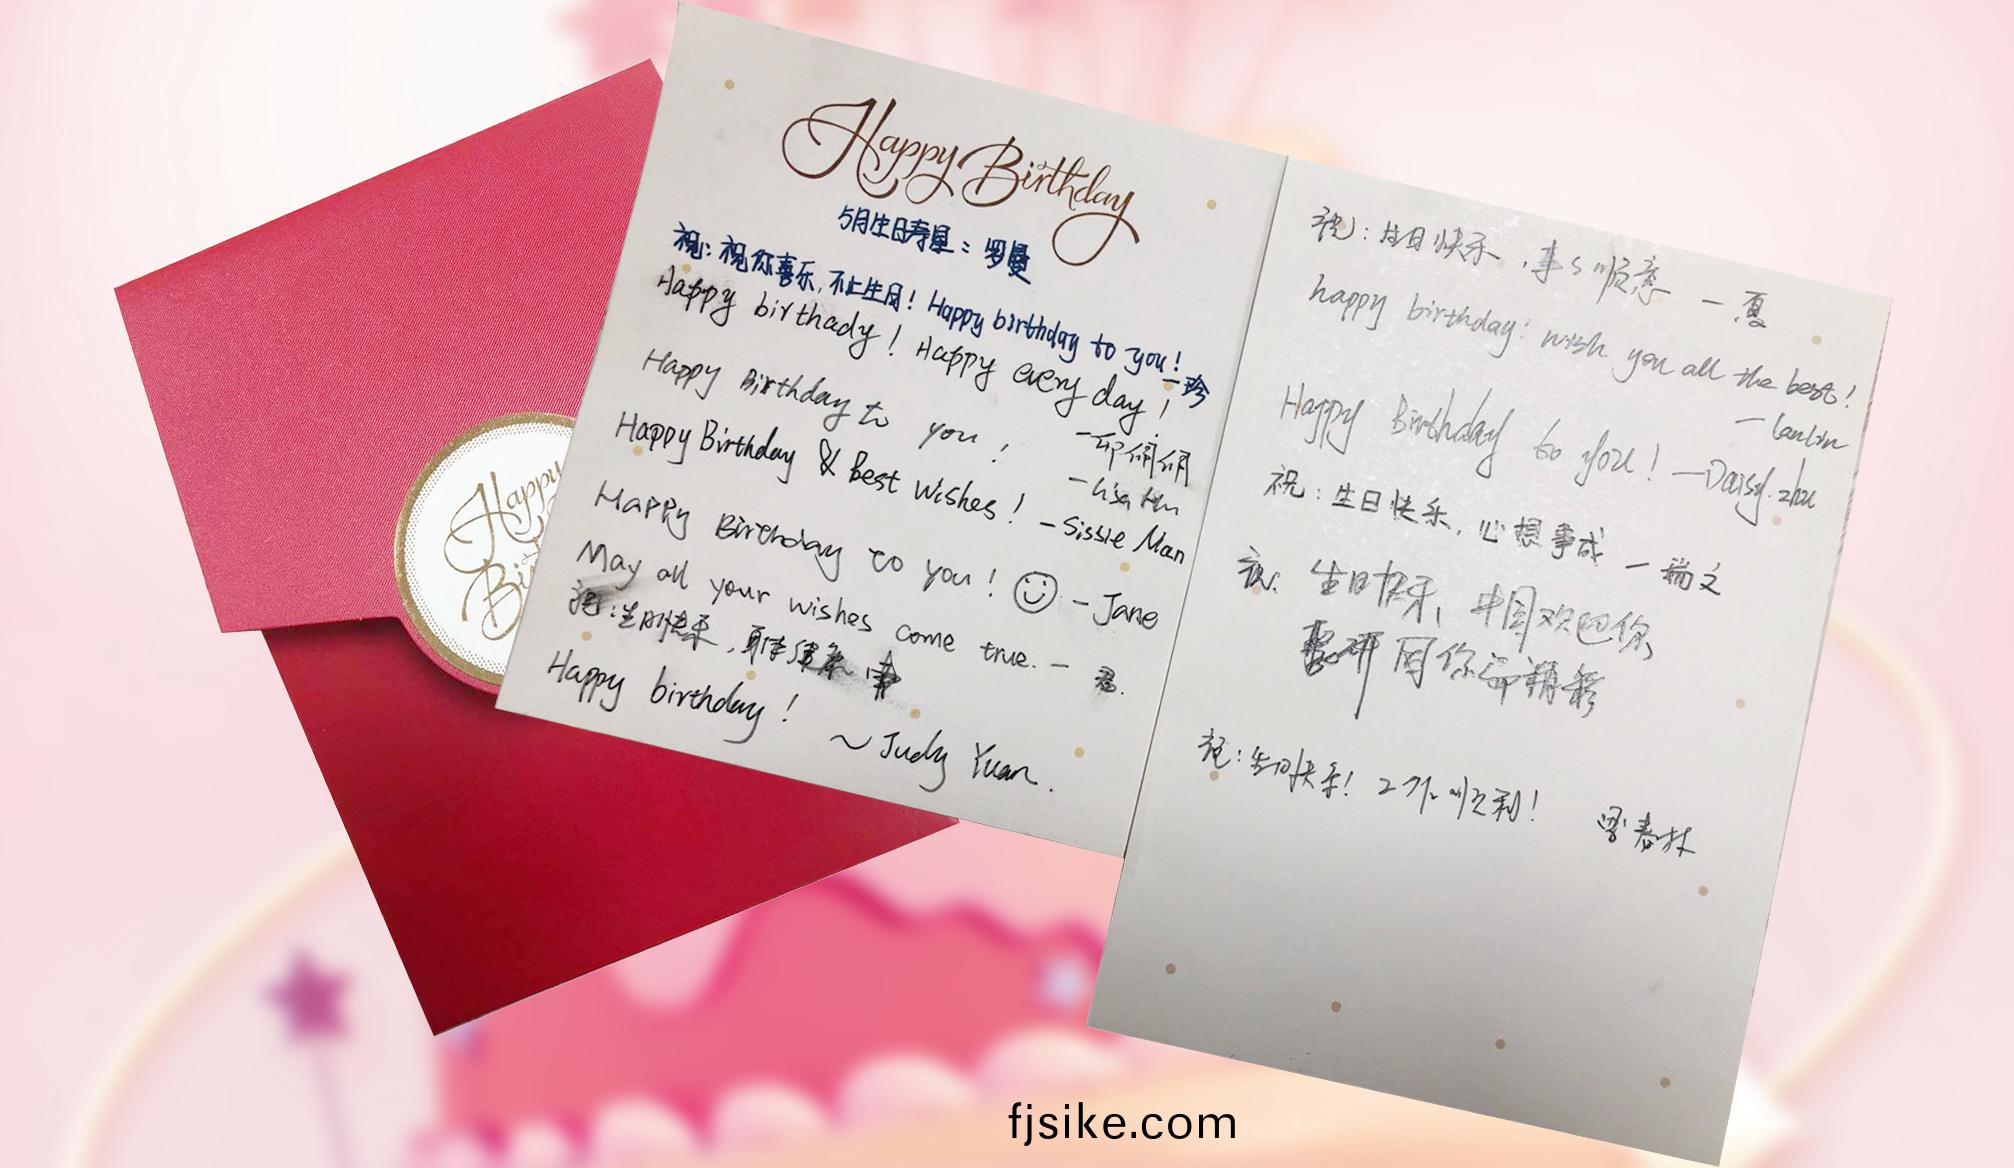 Happy
Bi
Happy Birthday
5月生日寿星：罗曼
祝：祝你喜乐，不止生日！Happy birthday to you！
—珍
Happy birthady！Happy every day！
—邹俩俩
Happy Birthday to you！
—Lisa Hu
Happy Birthday & Best Wishes！—Sissie Man
Happy Birthday to you！☺ —Jane
May all your wishes come true. —君.
祝：生日快乐，身体健康
Happy birthday！
～Judy Yuan.
祝：生日快乐，事事顺意 —夏
happy birthday! wish you all the best！
—lanlin
Happy Birthday to you！—Daisy.zhu
祝：生日快乐，心想事成 —瑞文
祝：生日快乐，中国欢迎你
因你而精彩
祝：生日快乐！工作顺利！
春林
fjsike.com